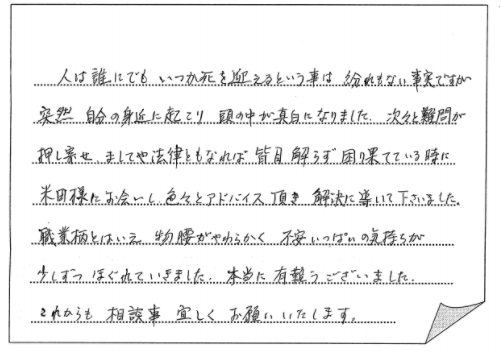 人は誰にでも いつか死を迎えるという事は 紛れもない事実ですが
突然 自分の身近に起こり 頭の中が真白になりました。次々と難問が
押し寄せ ましてや法律ともなれば 皆目解らず 困り果てている時に
米田様にお会いし 色々とアドバイス頂き 解決に導いて下さいました。
職業柄とはいえ 物腰がやわらかく 不安いっぱいの気持ちが
少しずつ ほぐれていきました。本当に 有難うございました。
これからも 相談事 宜しく お願いいたします。